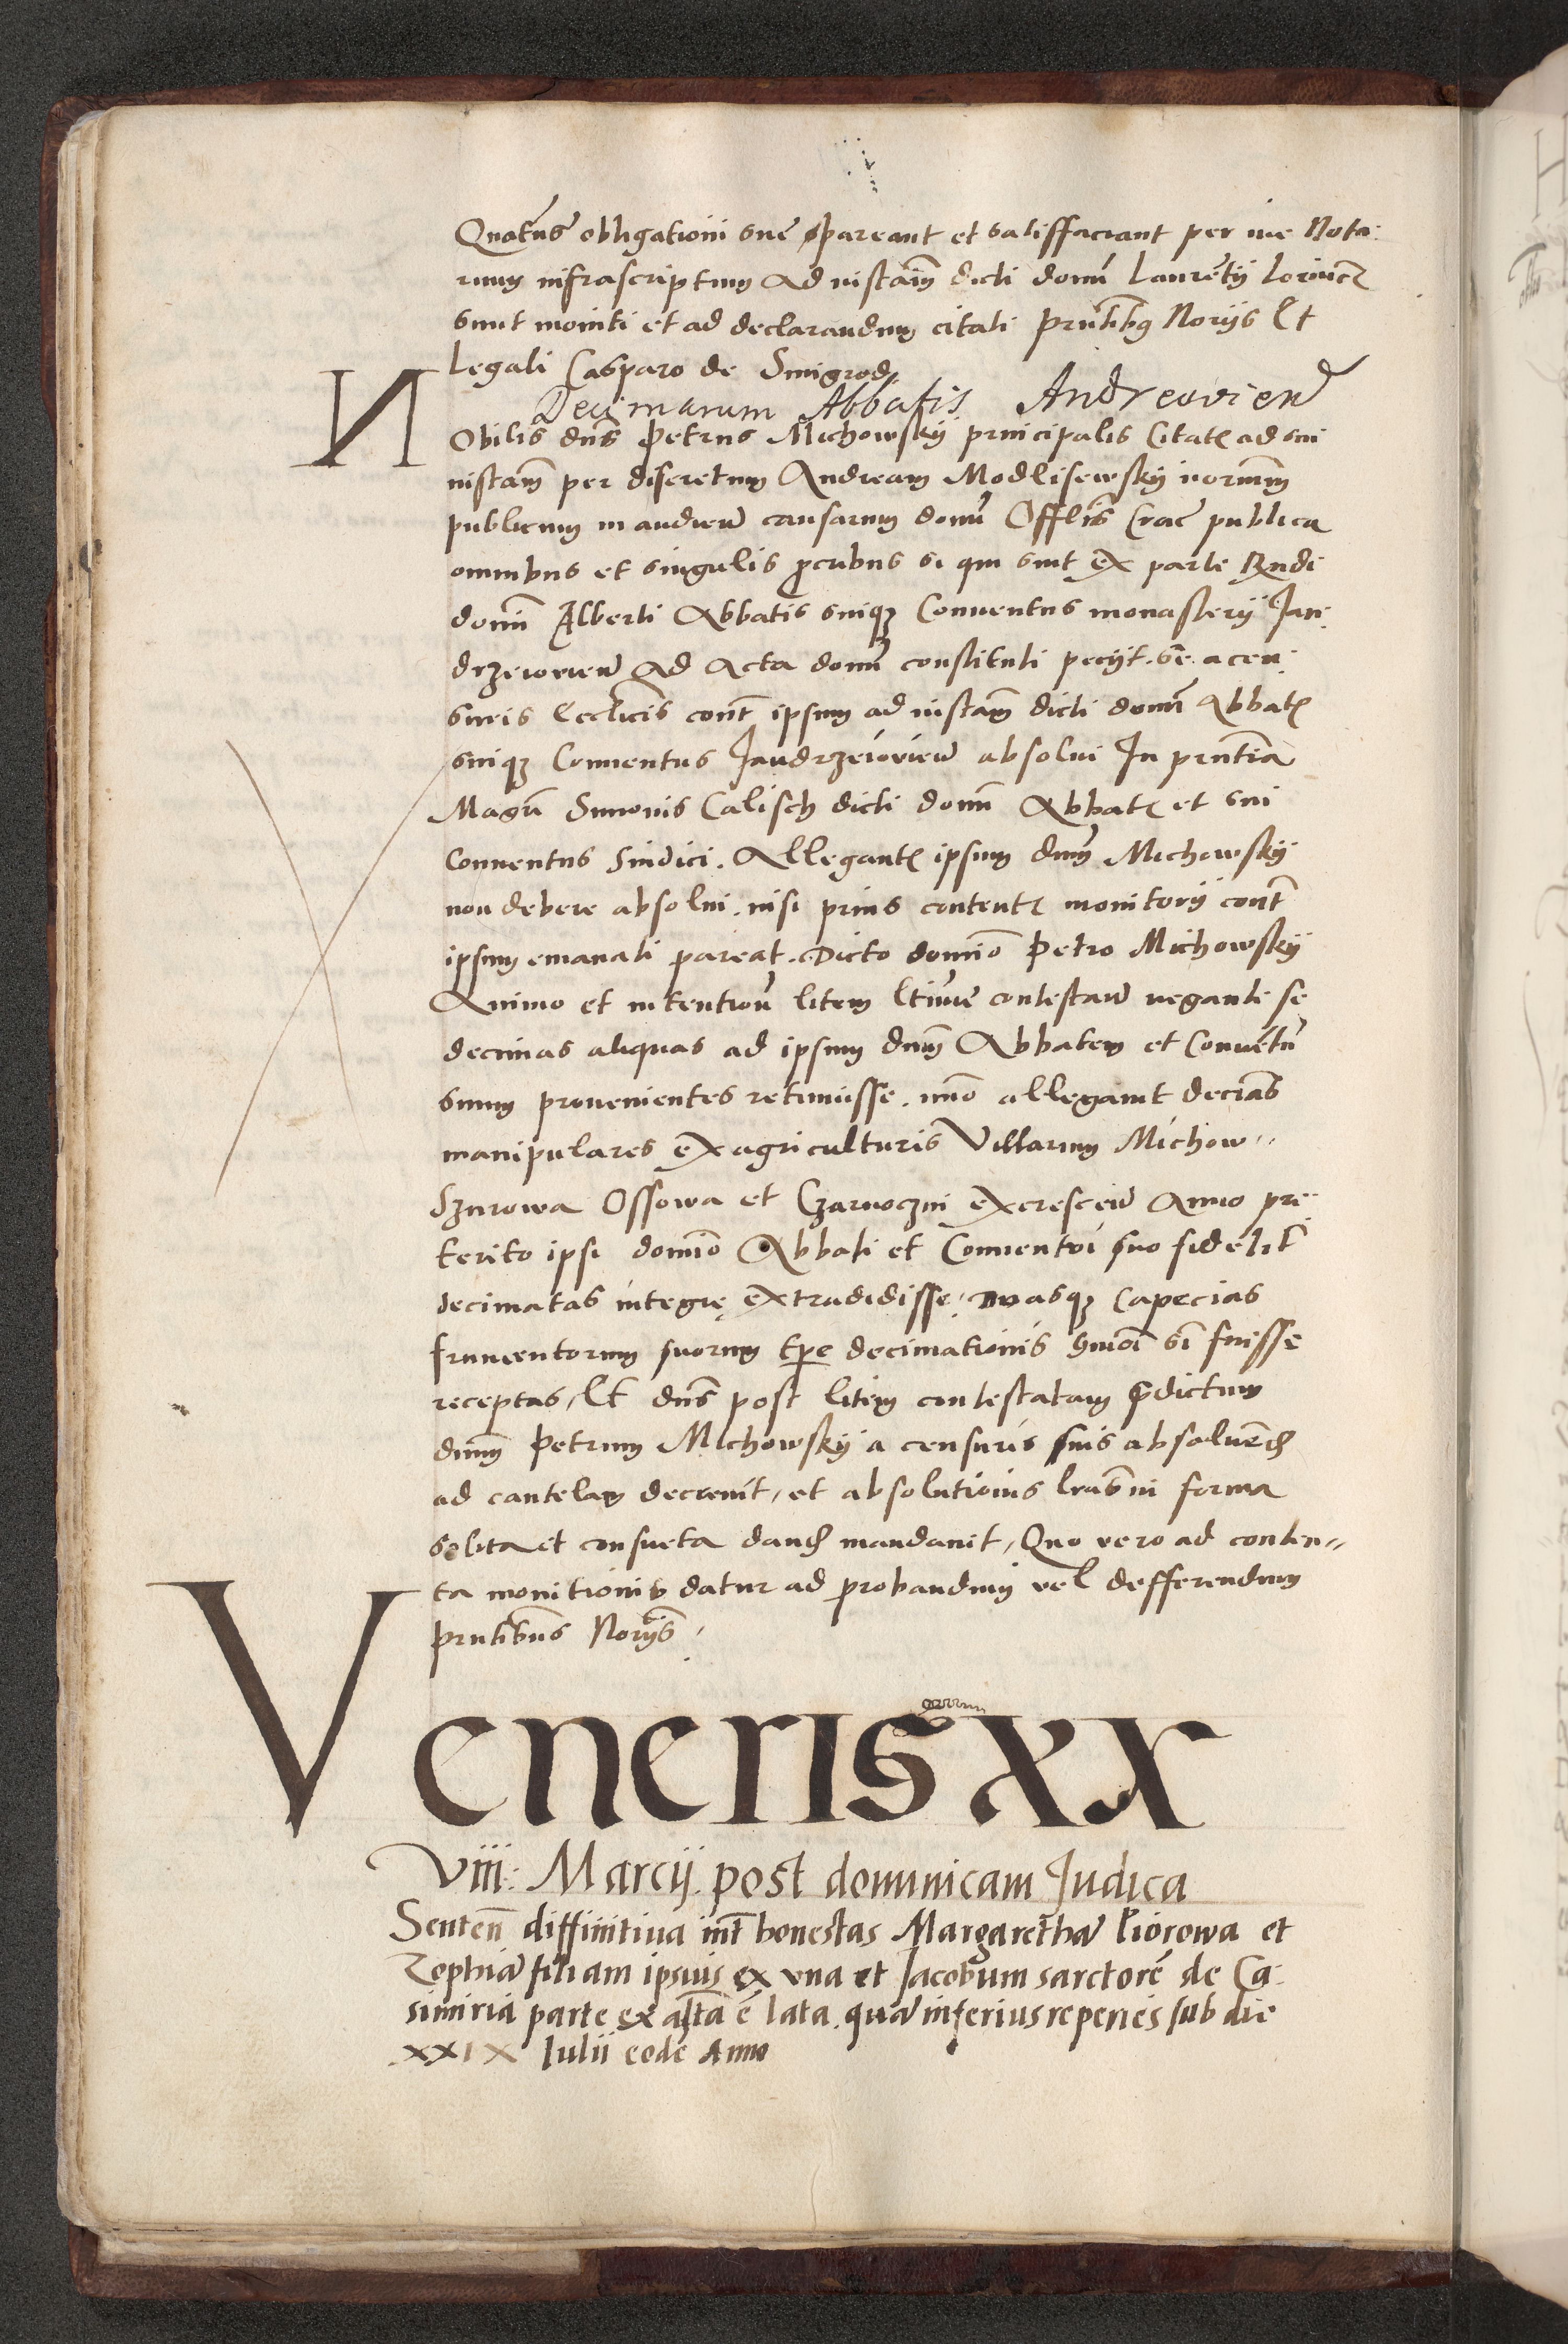 Quatēus obligationi sue pareant et satisffaciant per me Nota:
rium infrascriptum ad instaīm dicti domī Laurētij
sunt moniti et ad declarandum citati prntibꝯ Norijs Et
Legali Casparo de Smigrod
Decimarum Abbatis Andreovien̄
Nobilis dn̄s Petrus Michowskÿ principalis Citatꝭ ad sui
instaīm per discretum Andream Modlisewskÿ norium
publicum in audien̄ causarum domī Offlis̄ Crac̄ publica
omnibus et singulis ꝓcribus si qui sint ex parte Rn̄di
domī Alberti Abbatis suiqꝫ Conuentus monasterij Jan:
drzeiowien̄ ad Acta domī constituti pecijt. se a cen:
suris Ecclīcis cont̄ ipsum ad instaīm dicti domī Abbatꝭ
suiqꝫ Conuentus Jandrzeiowien̄ absolui In prn̄tia
Magrī Simonis Calisch dicti domī Abbatꝭ et sui
Conuentus Sindici. Allegantꝭ ipsum dnm̄ Michowskÿ
non debere absolui. nisi prius contentꝭ monitorij cont̄
ipsum emanati pareat. Dicto domīo Petro Michowskÿ
Animo et intentioñ litem contestan̄ negante se
decimas aliquas ad ipsum dnm̄ Abbatem et Conuētū
suum prouenientes retinuisse. immo allegauit decīas
manipulares ex agriculturis Villarum Michow
Szurowa Ossowa et Czarnoczin excrescen̄ Anno pre:
terito ipsi domīo Abbati et Conuentui suo fidelit̄
decimatas integrę extradidisse, suasqꝫ capecias
frumentorum suorum tꝑe decimationis hmoī sī fuisse
receptas, Et dn̄s post litem contestatam p̄dictum
dnm̄ Petrum Michowskÿ a censuris suis absoluen̄d
ad cautelam decreuit, et absolutionis lrās in forma
solita et consueta dand̄ mandauit, Quo vero ad conten=
ta monitionis datur ad probandum vel defferendum
prn̄tibus Norijs.
Veneris XX
VIII: Marcij post dominicam Judica
Senten̄ diffinitiua int̄ honestas Margarethā Piorowa et
Zophiā filiam ipsius ex vna et Jacobum sarctorē de Ca:
simiria parte ex alt̄a ē lata. quā inferius reperies sub die
XXIX Julii eodē Anno